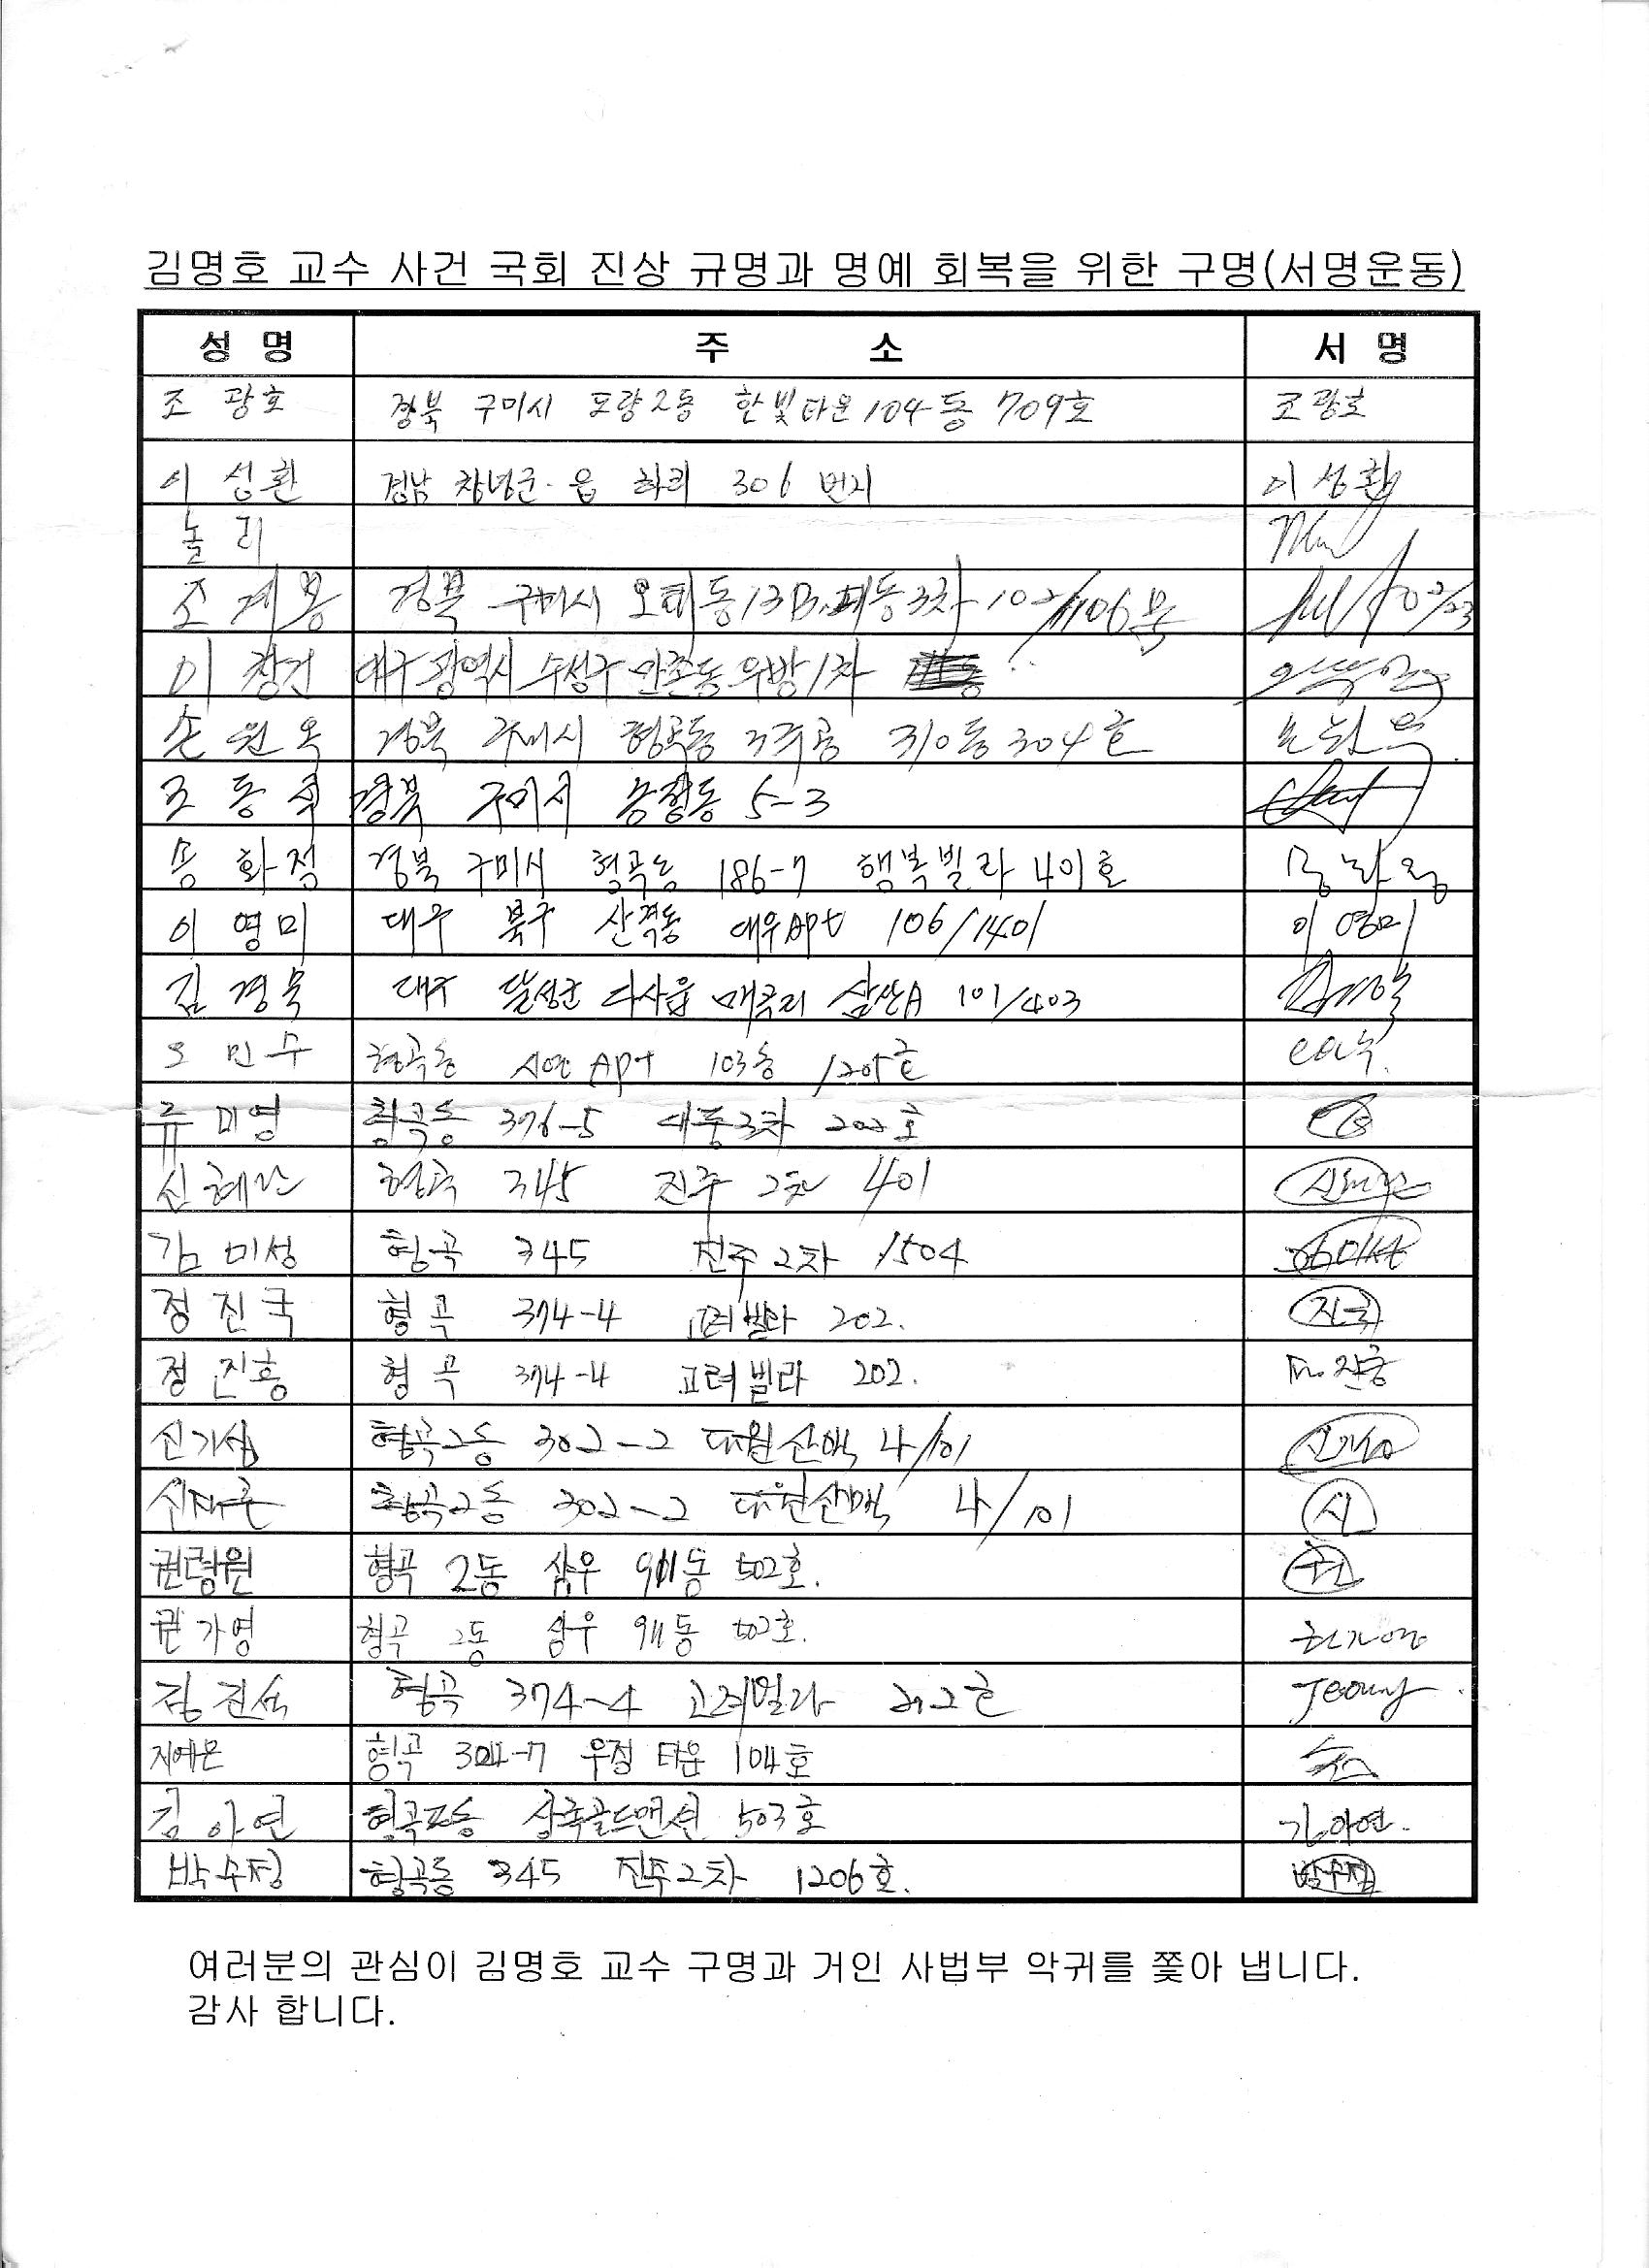 김명호 교수 사건 국회 진상 규명과 명예 회복을 위한 구명(서명운동)
성 명 주 소 서 명
조 광호 경북 구미시 도량2동 한빛타운 104동 709호 조광호
이 성환 경남 창녕군·읍 하리 306 번지 이성환
놀 리
조 계용 경북 구미시 오태동 13B 3차 102/1106
이 창건 대구광역시 수성구 만촌동 우방1차
손 원옥 경북 구미시 형곡동 3주공 310동 304호
조 동 경북 구미시 송정동 5-3
송 화정 경북 구미시 형곡동 186-7 행복빌라 401호
이 영미 대구 북구 산격동 대우Apt 106/1401 이영미
김 경욱 대구 달성군 다사읍 매곡리 삼산A 101/403
오 민수 형곡동 Apt 103동 1205호
류 미영 형곡동 376-5 대동3차 202호
신혜란 형곡 345 진주 2차 401
김 미성 형곡 345 진주 2차 1504
정 진국 형곡 374-4 고려빌라 202. 진국
정 진홍 형곡 374-4 고려빌라 202.
신기섭 형곡2동 302-2 태원산맥 4/101
형곡2동 302-2 태원산맥 4/101 신
권령원 형곡 2동 삼우 911동 502호.
권가영 형곡 2동 삼우 911동 502호. 권가영
김진석 형곡 374-4 고려빌라 202호 Jeong
지예은 형곡 304-7 우정 타운 104호
김 아연 형곡2동 상록골드맨션 503호 김아연.
박수정 형곡동 345 진주2차 1206호. 박수정
여러분의 관심이 김명호 교수 구명과 거인 사법부 악귀를 쫓아 냅니다.
감사 합니다.